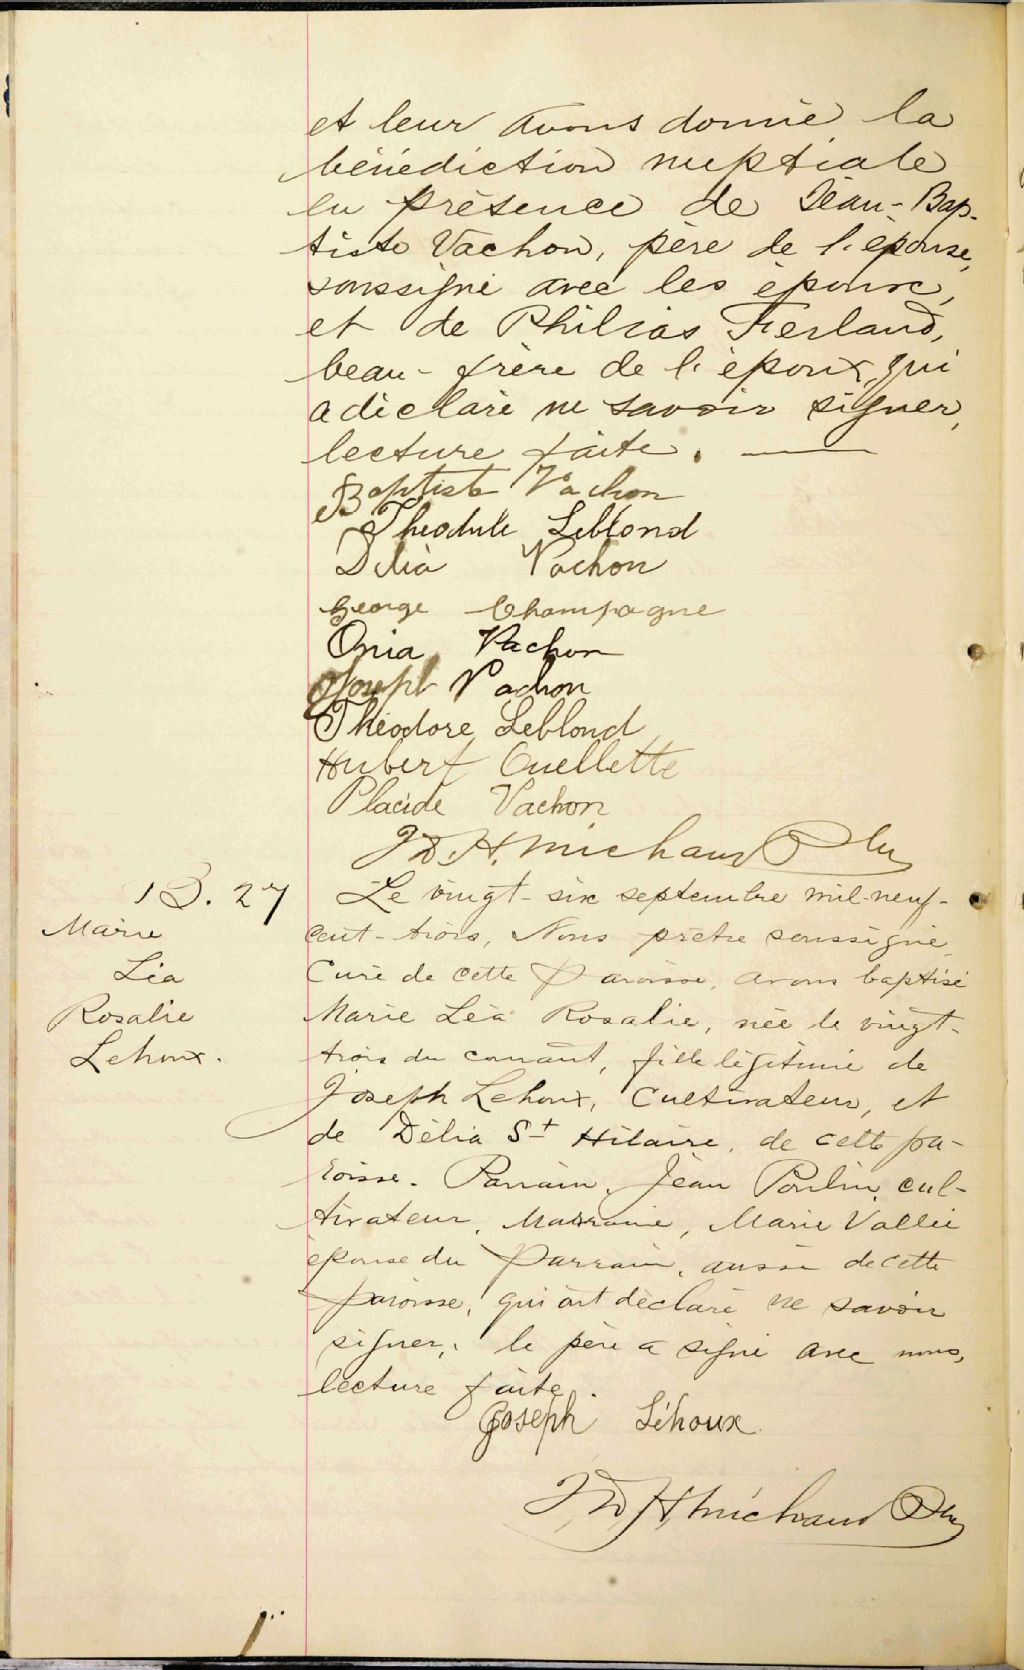 et leur avons donné la
bénédiction nuptiale
en présence de Jéan-Bap-
tiste Vachon, père de l'épouse,
soussigné avec les époux,
et de Philias Ferland,
beau-frère de l'époux, qui
a déclaré ne savoir signer,
lecture faite.
J Baptiste Vachon
Theodule Leblond
Délia Vachon
George Champagne
Onia Vachon
Joseph Vachon
Théodore Leblond
Hubert Ouellette
Placide Vachon
J D. H. Michaud Ptre
B. 27
Marie
Léa
Rosalie
Lehoux.
Le vingt-six septembre mil-neuf-
cent-trois, Nous prêtre soussigné
Curé de cette Paroisse, avons baptisé
Marie Léa Rosalie, née le vingt-
trois du courant, fille légitime de
Joseph Lehoux, Cultivateur, et
de Délia St Hilaire, de cette pa-
roisse. Parrain, Jéan Poulin, cul-
tivateur, Marraine, Marie Vallée
épouse du parrain, aussi de cette
paroisse, qui ont déclaré ne savoir
signer; le père a signé avec nous,
lecture faite.
Joseph Léhoux
J D H Michaud Ptre